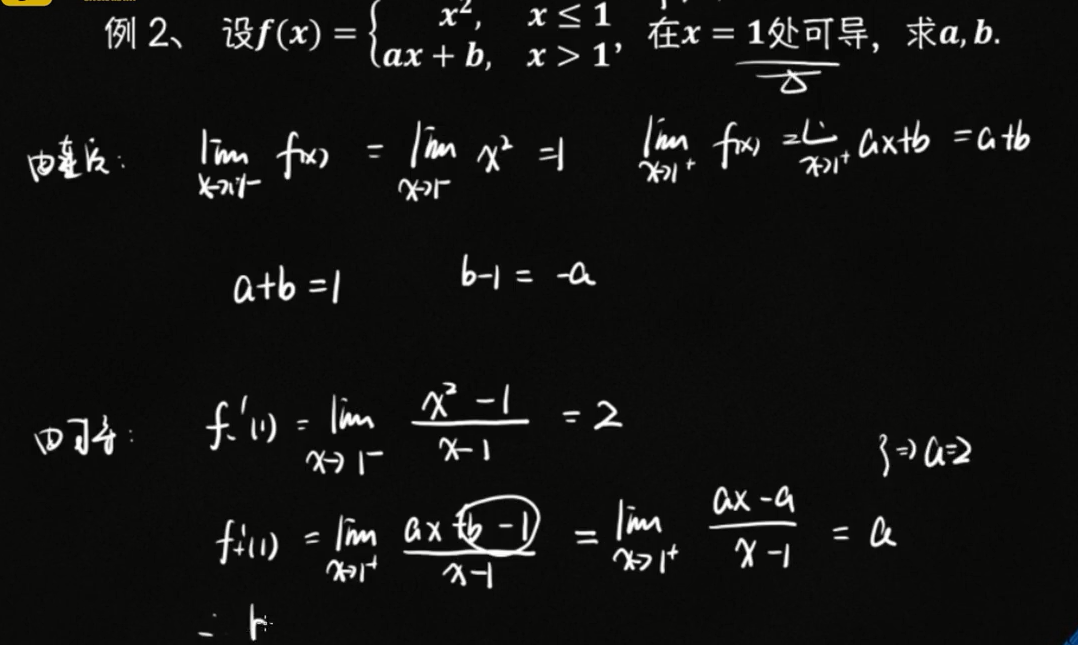 例 2、 设f(x) = { x², x ≤ 1
ax + b, x > 1 , 在x = 1处可导, 求a, b.
由连续: lim x→1⁻ f(x) = lim x→1⁻ x² = 1 lim x→1⁺ f(x) = lim x→1⁺ ax+b = a+b
a+b = 1 b-1 = -a
由可导: f₋'(1) = lim x→1⁻ (x² - 1)/(x-1) = 2
} ⇒ a=2
f₊'(1) = lim x→1⁺ (ax+b-1)/(x-1) = lim x→1⁺ (ax-a)/(x-1) = a